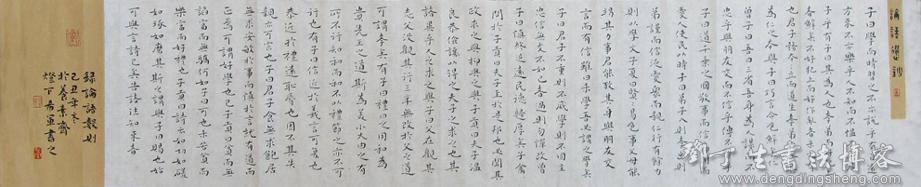 論語選抄
子曰學而時習之不亦説乎有朋自遠
方來不亦樂乎人不知而不愠不亦君
者鮮矣不好犯上而好作亂者
也君子務本本立而道生孝弟
為仁之本與子曰巧言令色鮮矣仁
曾子曰吾日三省吾身為人謀而
不忠乎與朋友交而不信乎傳不習乎
子曰道千乘之國敬事而信節用而
愛人使民以時子曰弟子入則孝出則
弟謹而信汎愛衆而親仁行有餘力
則以學文子夏曰賢賢易色事父母能
竭其力事君能致其身與朋友交
言而有信雖曰未學吾必謂之學矣
子曰君子不重則不威學則不固主
忠信無友不如己者過則勿憚改曾
子曰慎終追遠民德歸厚矣子禽
問於子貢曰夫子至於是邦也必聞其
政求之與抑與之與子貢曰夫子温
良恭儉讓以得之夫子之求之也其
諸異乎人之求之與子曰父在觀其
志父没觀其行三年無改於父之道
可謂孝矣有子曰禮之用和為
貴先王之道斯為美小大由之有
所不行知和而和不以禮節之亦不可
行也有子曰信近於義言可復也
恭近於禮遠恥辱也因不失其
親亦可宗也子曰君子食無求飽居
無求安敏於事而慎於言就有道而
正焉可謂好學也已子貢曰貧而無
諂富而無驕何如子曰可也未若貧而
樂富而好禮者也子貢曰詩云如切如磋
如琢如磨其斯之謂與子曰賜也始
可與言詩已矣告諸往知來者
録論語數則
己丑年冬
於養素齋
燈下希軍書之
邓丁生书法博客
www.dengdingsheng.com